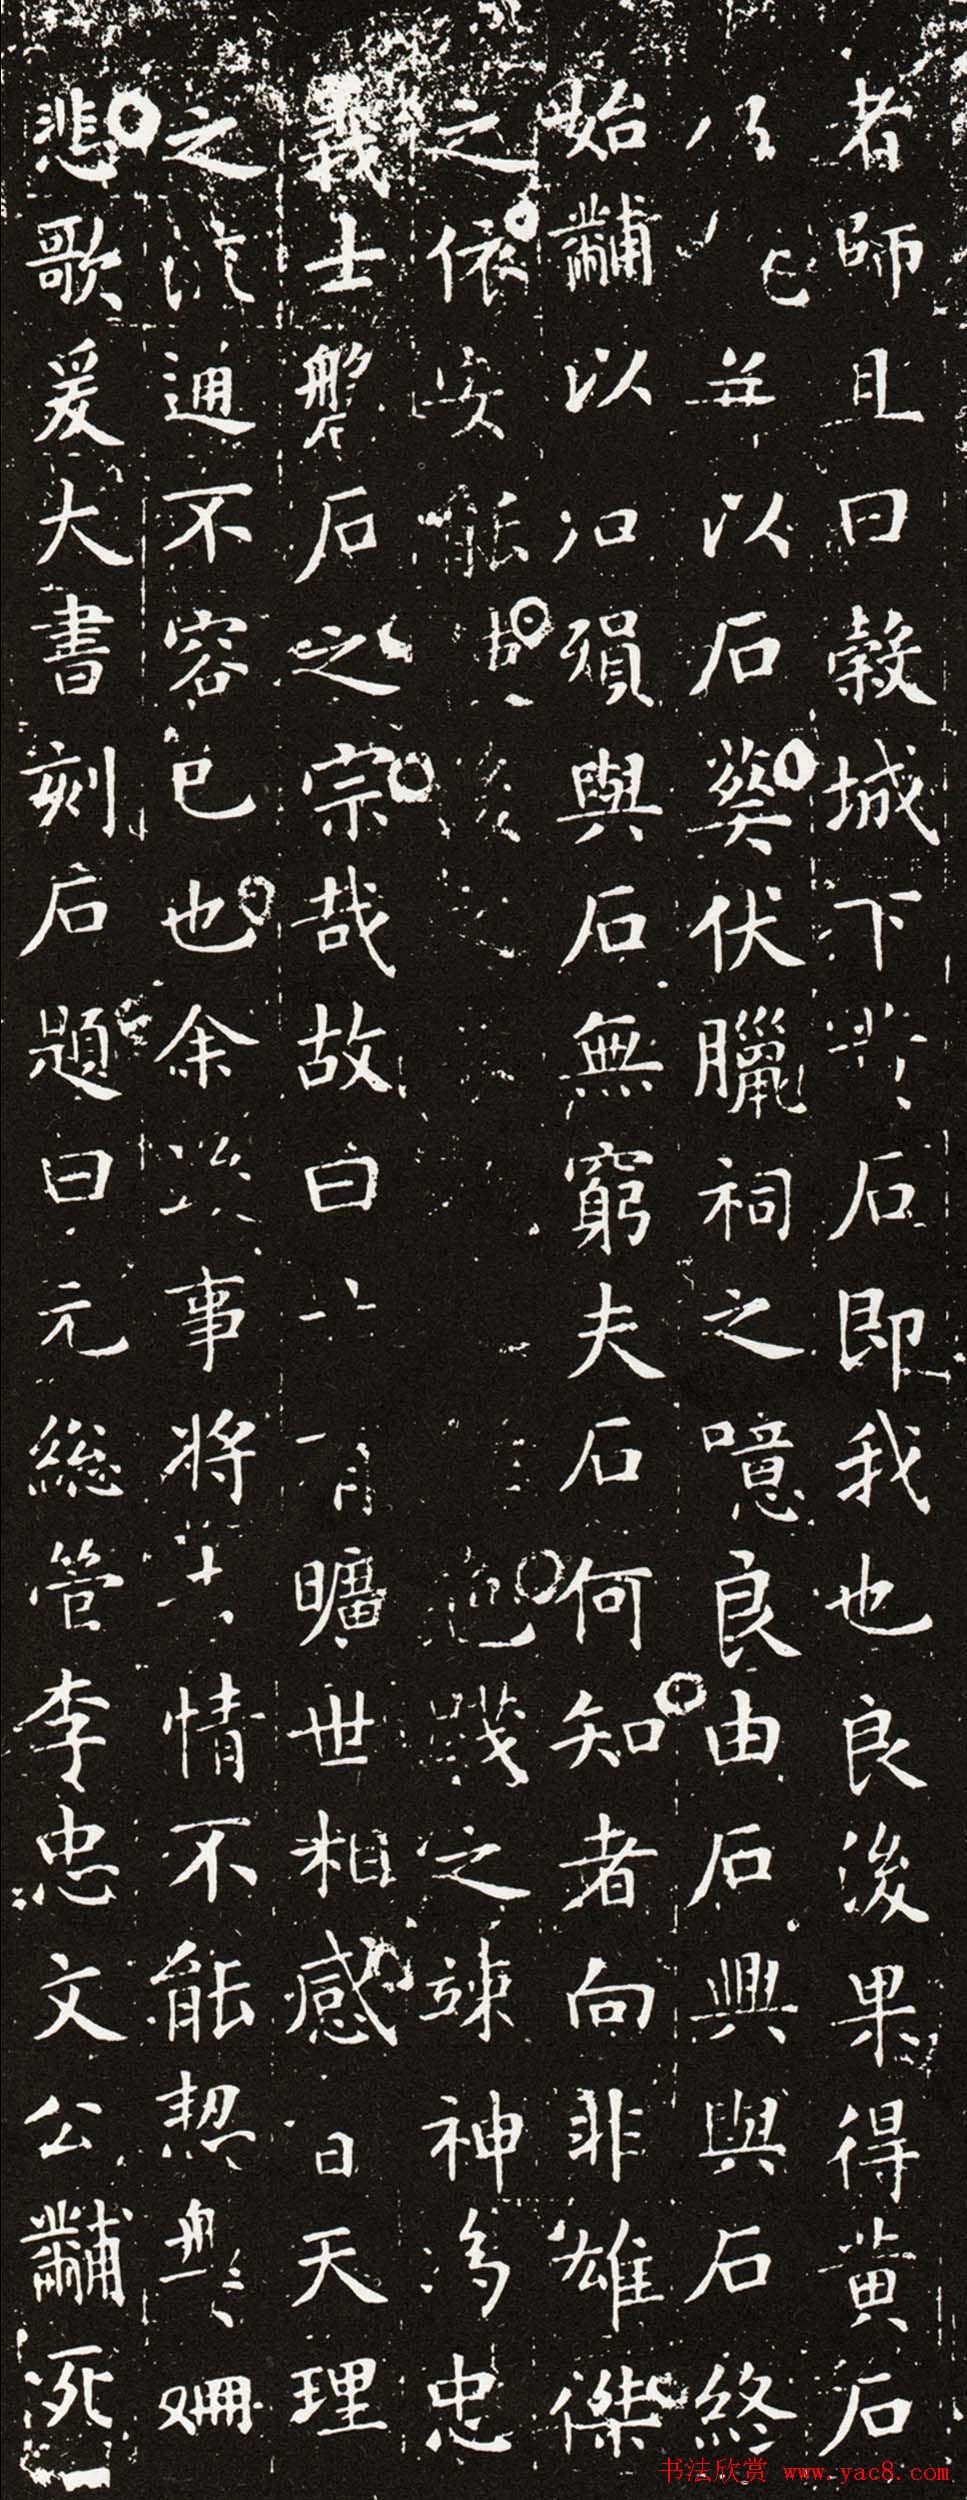 者師且曰穀城下黄石即我也良後果得黄石
並以石葬伏臘祠之噫良由石興與石終
始黼以殞與石無窮夫石何知者向非雄傑
之依安能之竦神為忠
義士磐石之宗哉故曰有曠世相感曰天理
之流通不容已也余事將情不能契
悲歌爰大書刻石題曰元總管李忠文公黼死
书法欣赏 www.yac8.com